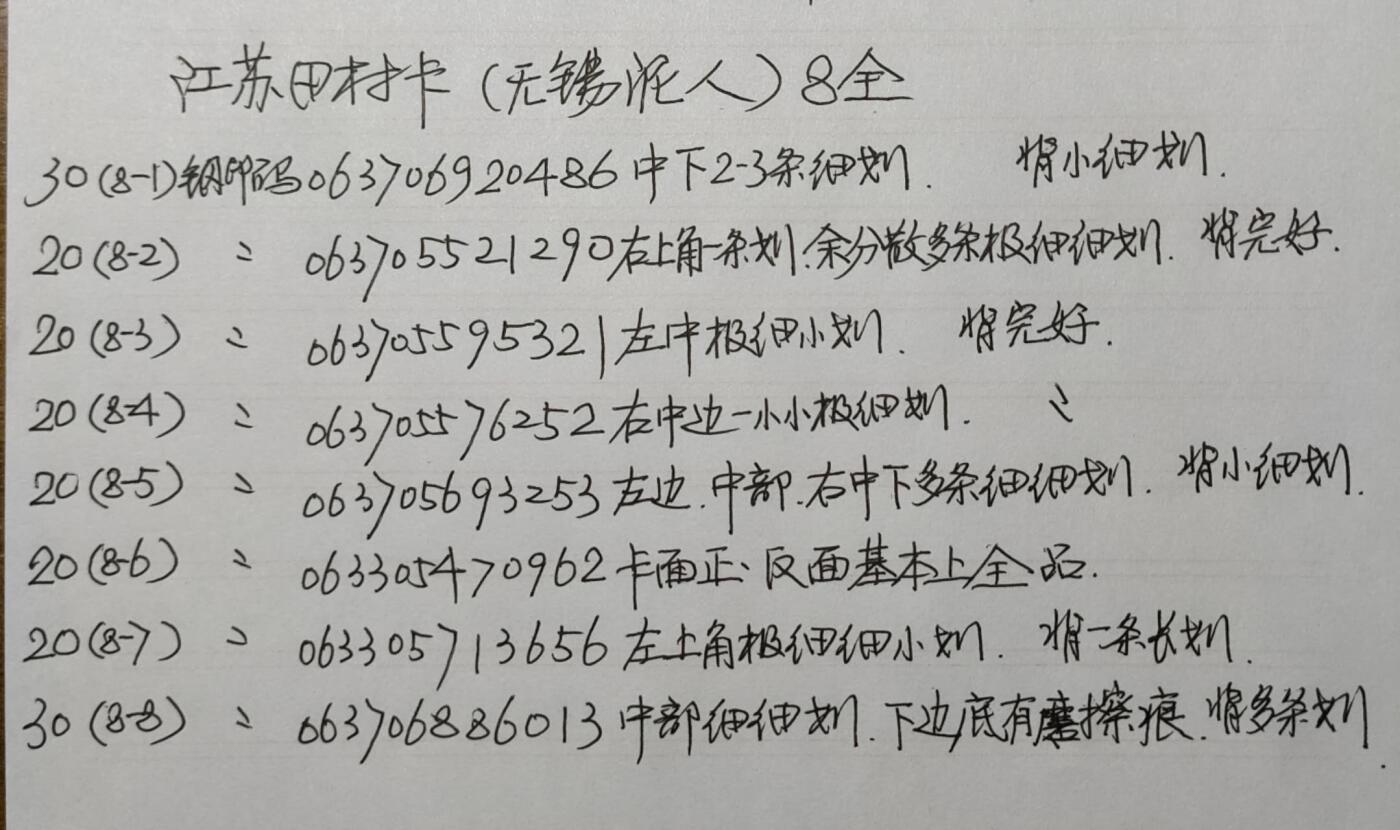 江苏田村卡（无锡泥人）8全
30(8-1)钢印码063706920486中下2-3条细划. 背小细划.
20(8-2) 〃 063705521290右上角一条划.余分散多条极细细划. 背完好.
20(8-3) 〃 063705595321左中极细小划. 背完好.
20(8-4) 〃 063705576252右中边一小小极细划. 〃
20(8-5) 〃 063705693253左边.中部.右中下多条细细划. 背小细划.
20(8-6) 〃 063305470962卡面正、反面基本上全品.
20(8-7) 〃 063305713656左上角极细细小划. 背一条长划.
30(8-8) 〃 063706886013中部细细划.下边底有磨擦痕.背多条划.